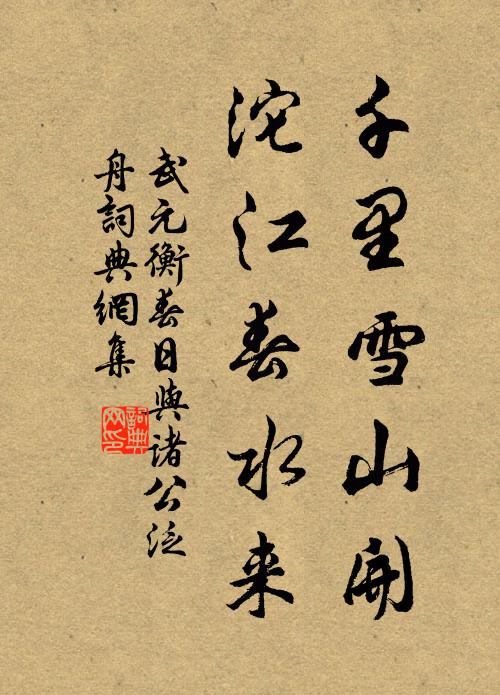 千里雪山開
沱江春水来
武元衡春日與諸公泛
舟詞典網集
詞典
网印